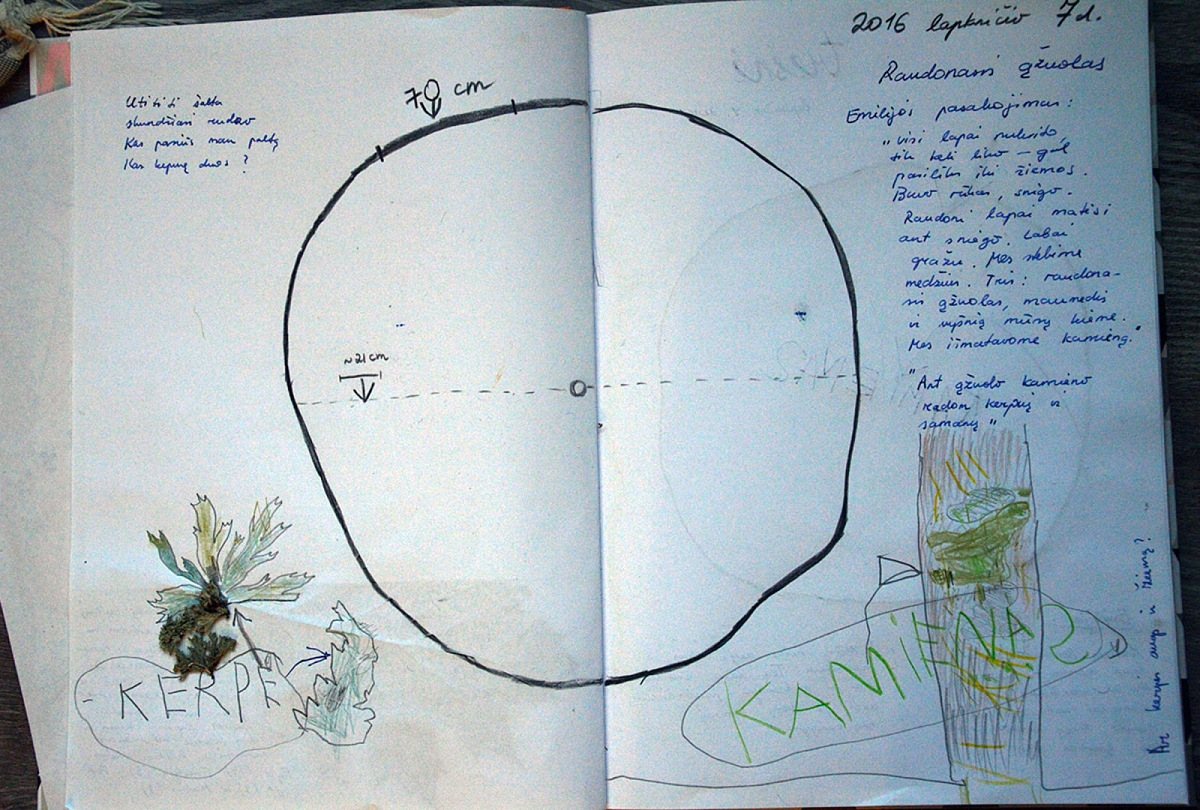 Utititi šalta
skundžiasi ruduo
Kas parneš man paltą
Kas kepurę duos ?
70 cm
~21 cm
KERPĖ
2016 lapkričio 7 d.
Raudonasis ąžuolas
Emilijos pasakojimas :
"Visi lapai nukrito,
tik keli liko – gal
pasiliks iki žiemos.
Buvo rūkas, snigo.
Raudoni lapai matėsi
ant sniego. Labai
gražu. Mes stebime
medžius. Tris : raudona-
sis ąžuolas, maumedis
ir vyšnią mūsų kieme.
Mes išmatavome kamieną."
"Ant ąžuolo kamieno
radom kerpių ir
samanų"
KAMIENAS
Ar kerpės auga ir žiemą?